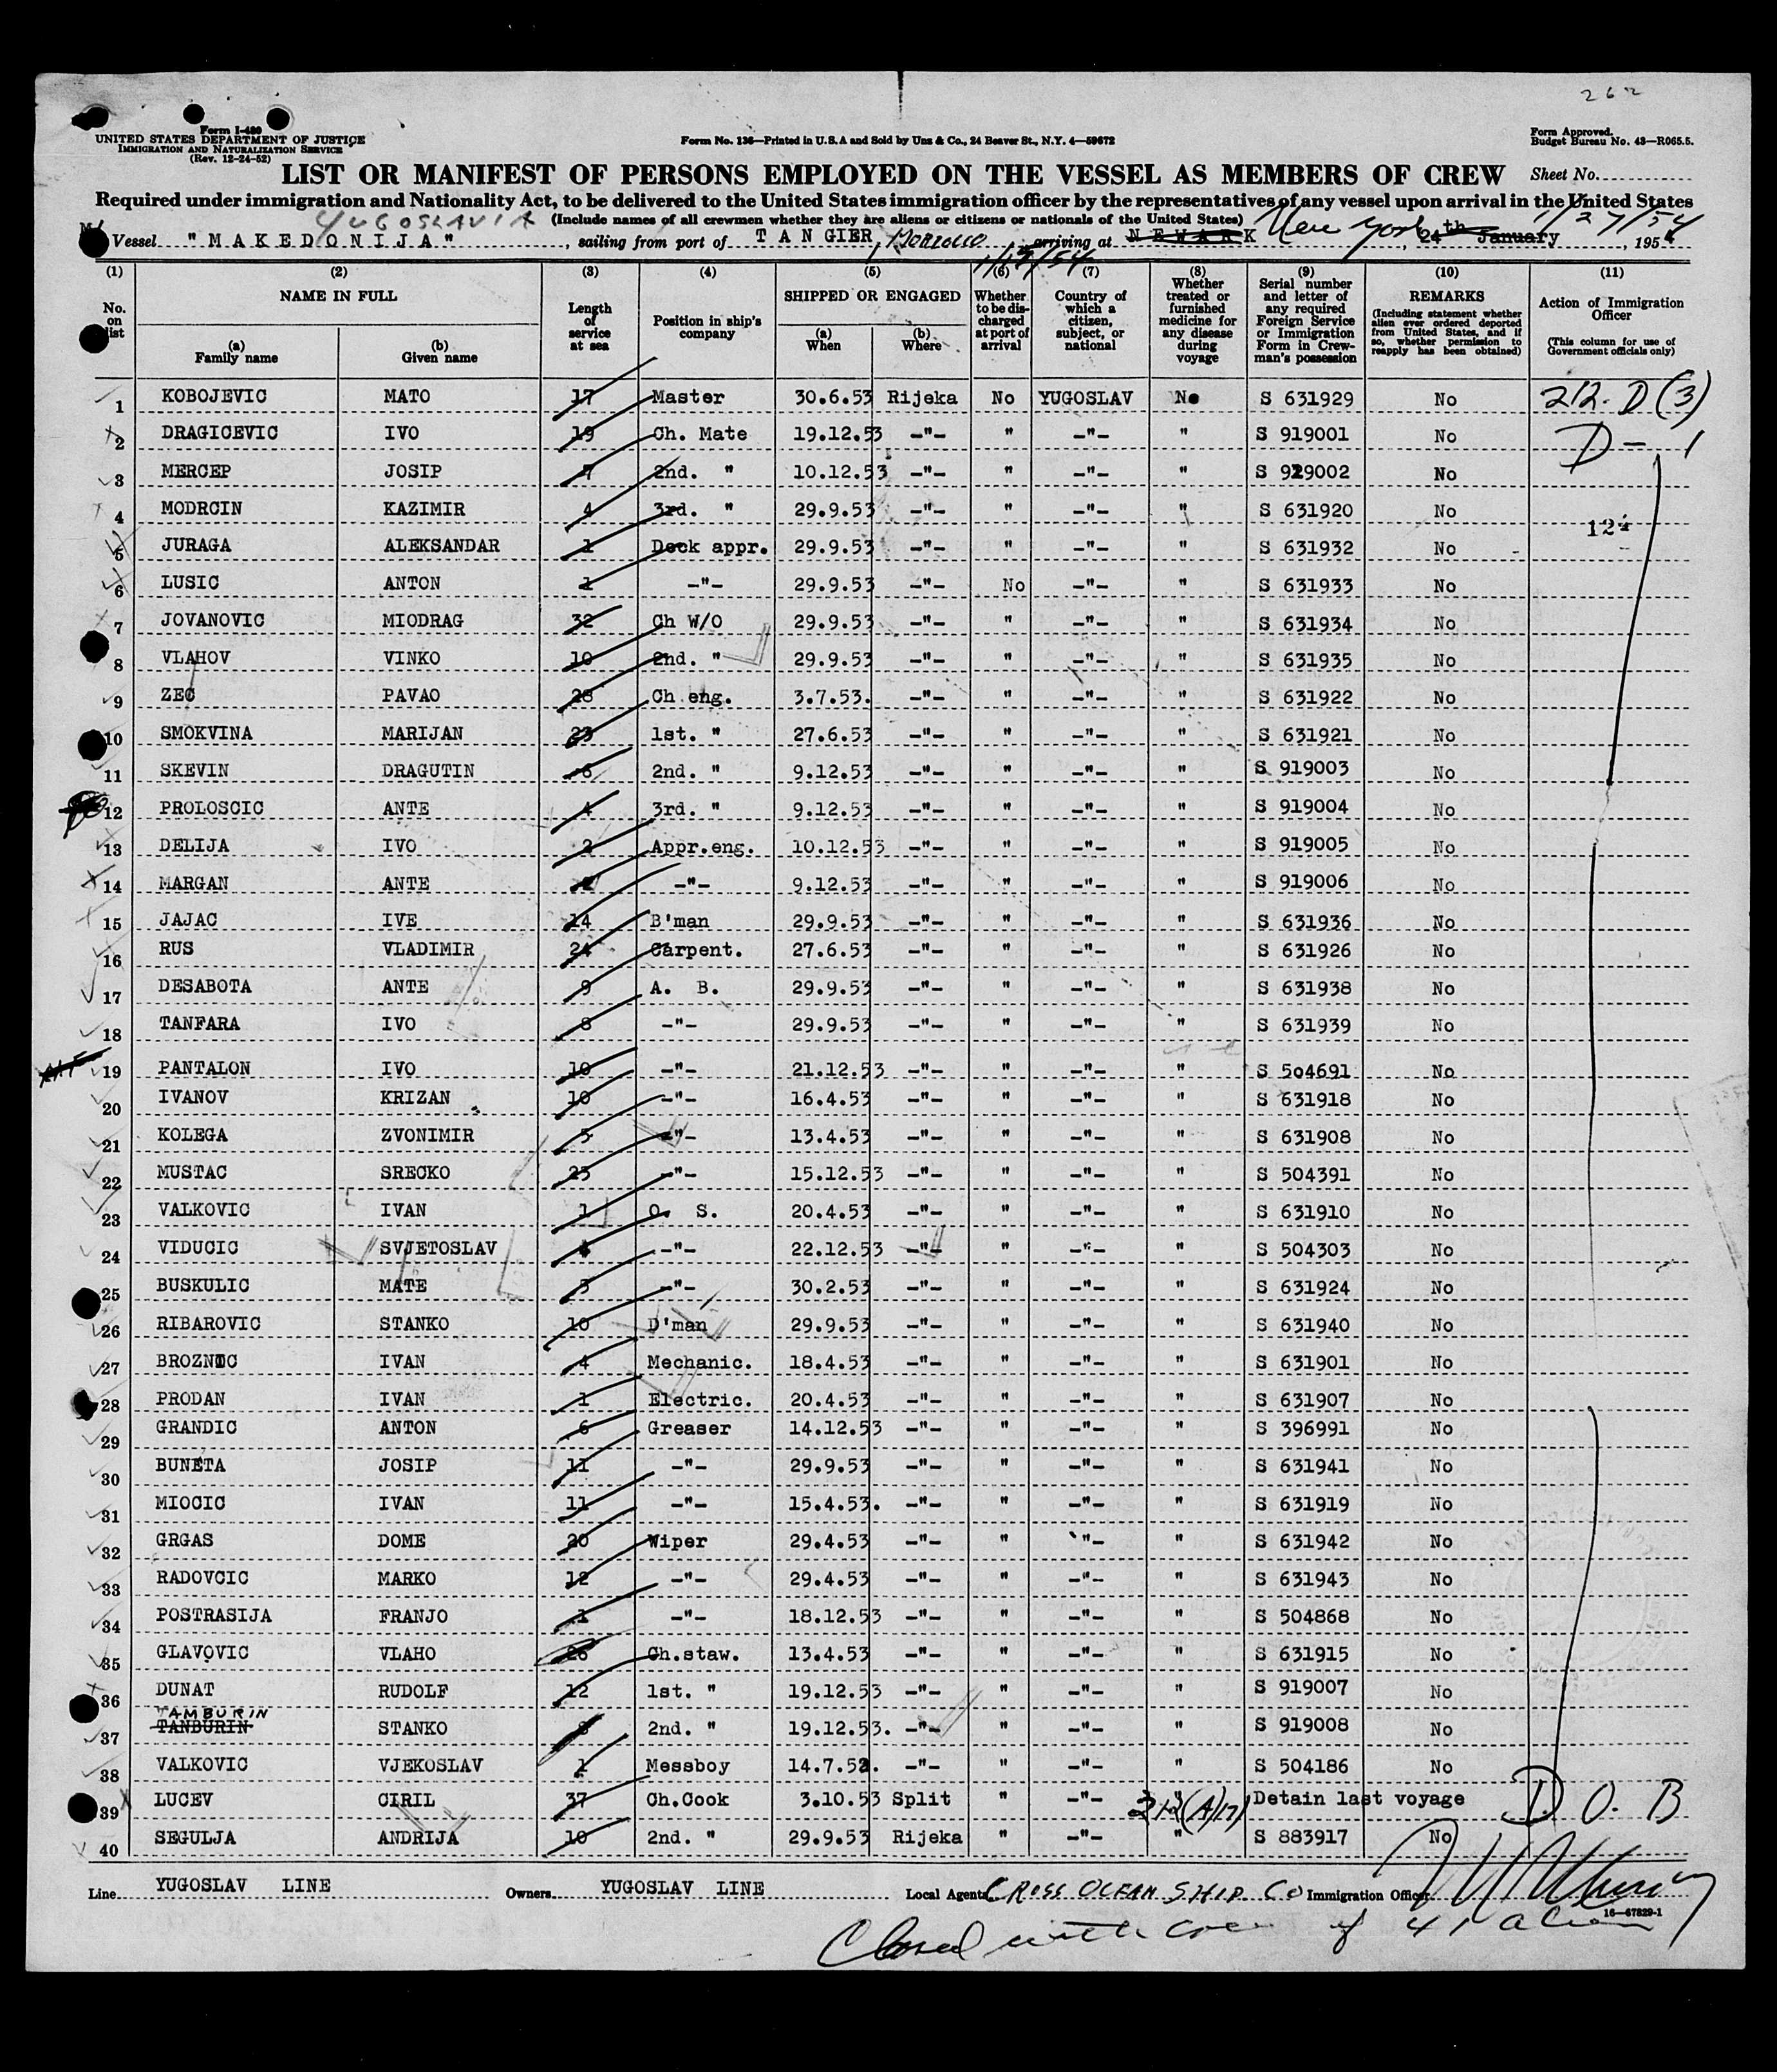 262
Form I-480
UNITED STATES DEPARTMENT OF JUSTICE
IMMIGRATION AND NATURALIZATION SERVICE
(Rev. 12-24-52)
Form No. 136—Printed in U.S.A and Sold by Unz & Co., 24 Beaver St., N.Y. 4—59672
Form Approved.
Budget Bureau No. 43—R065.5.
LIST OR MANIFEST OF PERSONS EMPLOYED ON THE VESSEL AS MEMBERS OF CREW Sheet No.
Required under immigration and Nationality Act, to be delivered to the United States immigration officer by the representatives of any vessel upon arrival in the United States
YUGOSLAVIA (Include names of all crewmen whether they are aliens or citizens or nationals of the United States)
Vessel "MAKEDONIJA", sailing from port of TANGIER, Morocco, 1/15/54 arriving at NEWARK New York, 24th January 1/27/54, 1954
(1) (2) (3) (4) (5) (6) (7) (8) (9) (10) (11)
No. on list NAME IN FULL (a) Family name (b) Given name Length of service at sea Position in ship's company SHIPPED OR ENGAGED (a) When (b) Where Whether to be discharged at port of arrival Country of which a citizen, subject, or national Whether treated or furnished medicine for any disease during voyage Serial number and letter of any required Foreign Service or Immigration Form in Crewman's possession REMARKS (Including statement whether alien ever ordered deported from United States, and if so, whether permission to reapply has been obtained) Action of Immigration Officer (This column for use of Government officials only)
1 KOBOJEVIC MATO 17 Master 30.6.53 Rijeka No YUGOSLAV No S 631929 No 212.D(3)
2 DRAGICEVIC IVO 19 Ch. Mate 19.12.53 -"- " -"- " S 919001 No D - 1
3 MERCEP JOSIP 7 2nd. " 10.12.53 -"- " -"- " S 929002 No
4 MODRCIN KAZIMIR 4 3rd. " 29.9.53 -"- " -"- " S 631920 No
5 JURAGA ALEKSANDAR 1 Deck appr. 29.9.53 -"- " -"- " S 631932 No
6 LUSIC ANTON 1 -"- 29.9.53 -"- No -"- " S 631933 No
7 JOVANOVIC MIODRAG 32 Ch W/O 29.9.53 -"- " -"- " S 631934 No
8 VLAHOV VINKO 10 2nd. " 29.9.53 -"- " -"- " S 631935 No
9 ZEC PAVAO 28 Ch eng. 3.7.53. -"- " -"- " S 631922 No
10 SMOKVINA MARIJAN 23 1st. " 27.6.53 -"- " -"- " S 631921 No
11 SKEVIN DRAGUTIN 6 2nd. " 9.12.53 -"- " -"- " S 919003 No
12 PROLOSCIC ANTE 4 3rd. " 9.12.53 -"- " -"- " S 919004 No
13 DELIJA IVO 2 Appr.eng. 10.12.53 -"- " -"- " S 919005 No
14 MARGAN ANTE -"- 9.12.53 -"- " -"- " S 919006 No
15 JAJAC IVE 14 B'man 29.9.53 -"- " -"- " S 631936 No
16 RUS VLADIMIR 24 Carpent. 27.6.53 -"- " -"- " S 631926 No
17 DESABOTA ANTE 9 A. B. 29.9.53 -"- " -"- " S 631938 No
18 TANFARA IVO 8 -"- 29.9.53 -"- " -"- " S 631939 No
19 PANTALON IVO 10 -"- 21.12.53 -"- " -"- " S 504691 No
20 IVANOV KRIZAN 10 -"- 16.4.53 -"- " -"- " S 631918 No
21 KOLEGA ZVONIMIR 5 -"- 13.4.53 -"- " -"- " S 631908 No
22 MUSTAC SRECKO 25 -"- 15.12.53 -"- " -"- " S 504391 No
23 VALKOVIC IVAN 1 O. S. 20.4.53 -"- " -"- " S 631910 No
24 VIDUCIC SVJETOSLAV -"- 22.12.53 -"- " -"- " S 504303 No
25 BUSKULIC MATE 3 -"- 30.2.53 -"- " -"- " S 631924 No
26 RIBAROVIC STANKO 10 D'man 29.9.53 -"- " -"- " S 631940 No
27 BROZNIC IVAN 4 Mechanic. 18.4.53 -"- " -"- " S 631901 No
28 PRODAN IVAN 1 Electric. 20.4.53 -"- " -"- " S 631907 No
29 GRANDIC ANTON 6 Greaser 14.12.53 -"- " -"- " S 396991 No
30 BUNETA JOSIP 11 -"- 29.9.53 -"- " -"- " S 631941 No
31 MIOCIC IVAN 11 -"- 15.4.53. -"- " -"- " S 631919 No
32 GRGAS DOME 20 Wiper 29.4.53 -"- " -"- " S 631942 No
33 RADOVCIC MARKO 12 -"- 29.4.53 -"- " -"- " S 631943 No
34 POSTRASIJA FRANJO 1 -"- 18.12.53 -"- " -"- " S 504868 No
35 GLAVOVIC VLAHO 26 Ch.staw. 13.4.53 -"- " -"- " S 631915 No
36 DUNAT RUDOLF 12 1st. " 19.12.53 -"- " -"- " S 919007 No
TAMBURIN
37 TANBURIN STANKO 8 2nd. " 19.12.53. -"- " -"- " S 919008 No
38 VALKOVIC VJEKOSLAV 1 Messboy 14.7.52. -"- " -"- " S 504186 No
39 LUCEV CIRIL 37 Ch.Cook 3.10.53 Split " -"- " 212(A)(17) Detain last voyage D. O. B
40 SEGULJA ANDRIJA 10 2nd. " 29.9.53 Rijeka " -"- " S 883917 No
Line YUGOSLAV LINE Owners YUGOSLAV LINE Local Agents CROSS OCEAN SHIP. CO Immigration Officer
16—67829-1
Closed with crew of 41 aliens